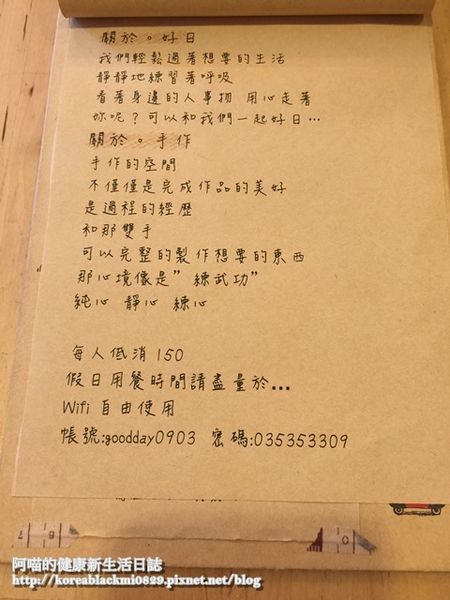 關於。好日
我們輕鬆過著想要的生活
靜靜地練習著呼吸
看著身邊的人事物 用心走著
妳呢？可以和我們一起好日…
關於。手作
手作的空間
不僅僅是完成作品的美好
是過程的經歷
和那雙手
可以完整的製作想要的東西
那心境像是”練武功”
純心 靜心 練心
每人低消150
假日用餐時間請盡量於…
Wifi 自由使用
帳號:goodday0903 密碼:035353309
阿喵的健康新生活日誌
http://koreablackmi0829.pixnet.net/blog